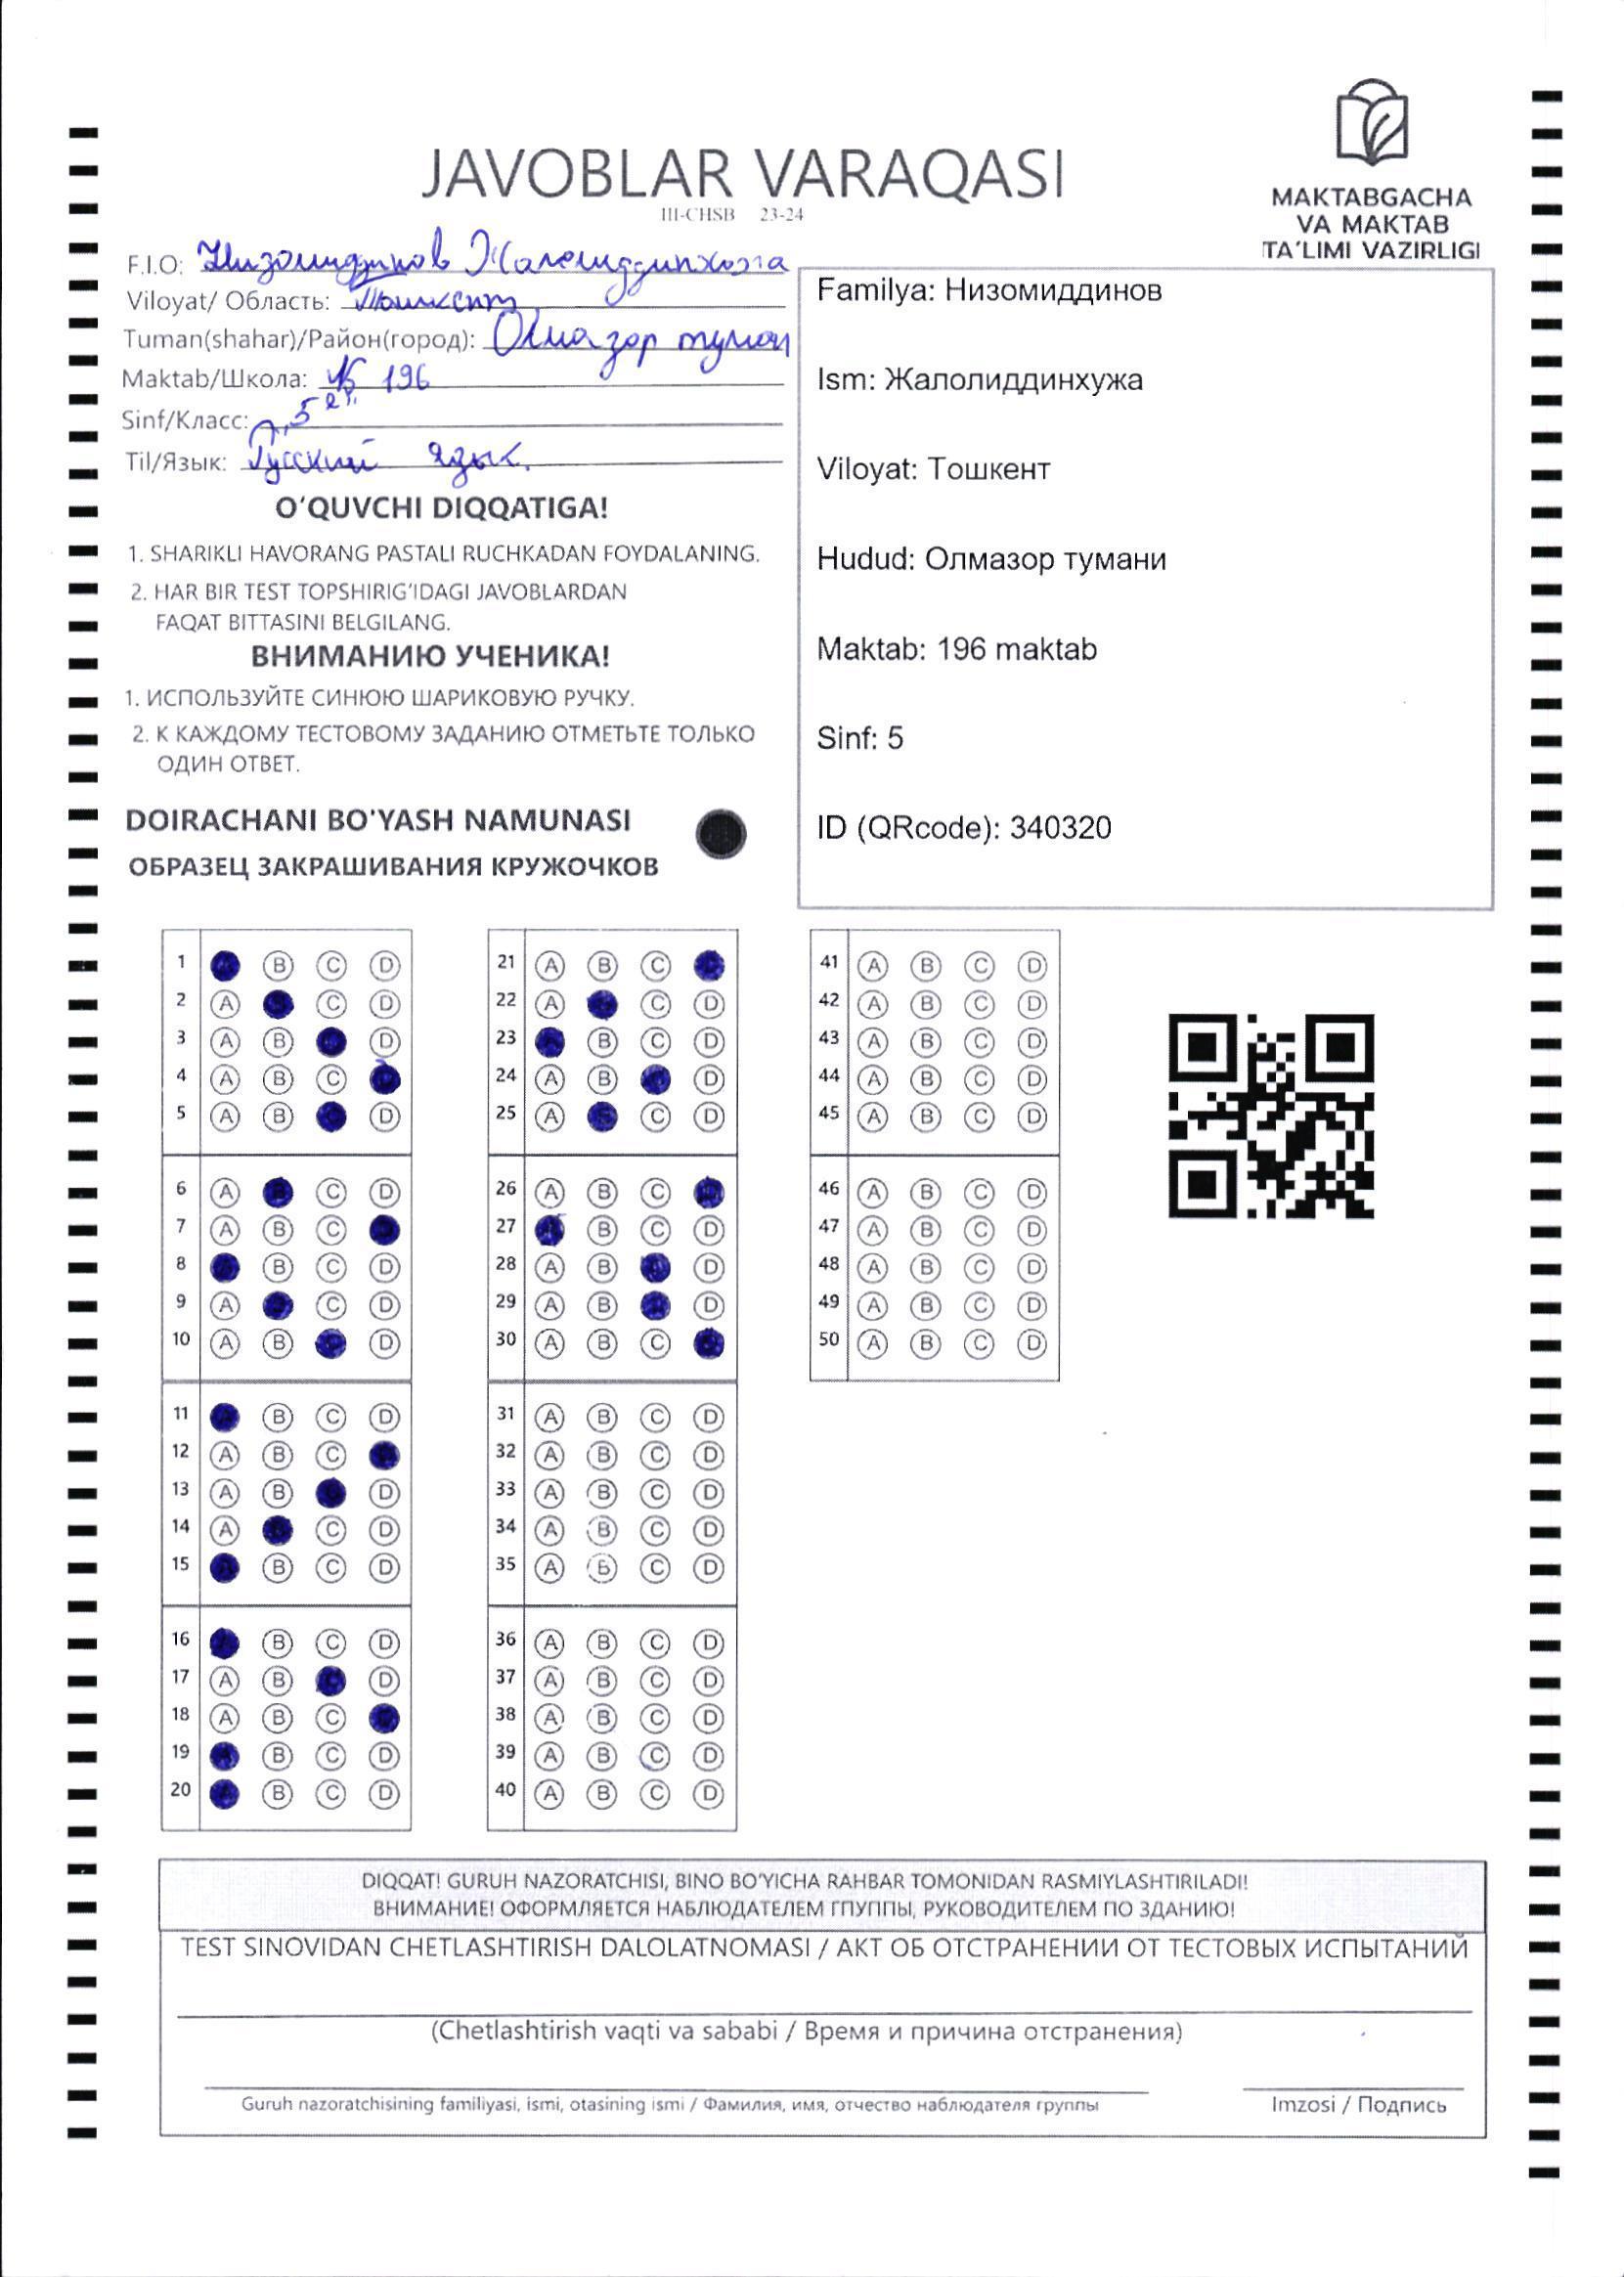 JAVOBLAR VARAQASI
III-CHSB 23-24
MAKTABGACHA
VA MAKTAB
TA'LIMI VAZIRLIGI
F.I.O: Низомидинов Жалолиддинхожа
Viloyat/ Область: Тошкент
Tuman(shahar)/Район(город): Олмазор туман
Maktab/Школа: № 196
Sinf/Класс: 5
Til/Язык: Русский язык.
O'QUVCHI DIQQATIGA!
1. SHARIKLI HAVORANG PASTALI RUCHKADAN FOYDALANING.
2. HAR BIR TEST TOPSHIRIG'IDAGI JAVOBLARDAN
FAQAT BITTASINI BELGILANG.
ВНИМАНИЮ УЧЕНИКА!
1. ИСПОЛЬЗУЙТЕ СИНЮЮ ШАРИКОВУЮ РУЧКУ.
2. К КАЖДОМУ ТЕСТОВОМУ ЗАДАНИЮ ОТМЕТЬТЕ ТОЛЬКО
ОДИН ОТВЕТ.
DOIRACHANI BO'YASH NAMUNASI
ОБРАЗЕЦ ЗАКРАШИВАНИЯ КРУЖОЧКОВ
Familya: Низомиддинов
Ism: Жалолиддинхужа
Viloyat: Тошкент
Hudud: Олмазор тумани
Maktab: 196 maktab
Sinf: 5
ID (QRcode): 340320
1 B C D
2 A C D
3 A B D
4 A B C
5 A B D
6 A C D
7 A B C
8 B C D
9 A C D
10 A B D
11 B C D
12 A B C
13 A B D
14 A C D
15 B C D
16 B C D
17 A B D
18 A B C
19 B C D
20 B C D
21 A B C
22 A C D
23 B C D
24 A B D
25 A C D
26 A B C
27 B C D
28 A B D
29 A B D
30 A B C
31 A B C D
32 A B C D
33 A B C D
34 A B C D
35 A B C D
36 A B C D
37 A B C D
38 A B C D
39 A B C D
40 A B C D
41 A B C D
42 A B C D
43 A B C D
44 A B C D
45 A B C D
46 A B C D
47 A B C D
48 A B C D
49 A B C D
50 A B C D
DIQQAT! GURUH NAZORATCHISI, BINO BO'YICHA RAHBAR TOMONIDAN RASMIYLASHTIRILADI!
ВНИМАНИЕ! ОФОРМЛЯЕТСЯ НАБЛЮДАТЕЛЕМ ГПУППЫ, РУКОВОДИТЕЛЕМ ПО ЗДАНИЮ!
TEST SINOVIDAN CHETLASHTIRISH DALOLATNOMASI / АКТ ОБ ОТСТРАНЕНИИ ОТ ТЕСТОВЫХ ИСПЫТАНИЙ
(Chetlashtirish vaqti va sababi / Время и причина отстранения)
Guruh nazoratchisining familiyasi, ismi, otasining ismi / Фамилия, имя, отчество наблюдателя группы
Imzosi / Подпись